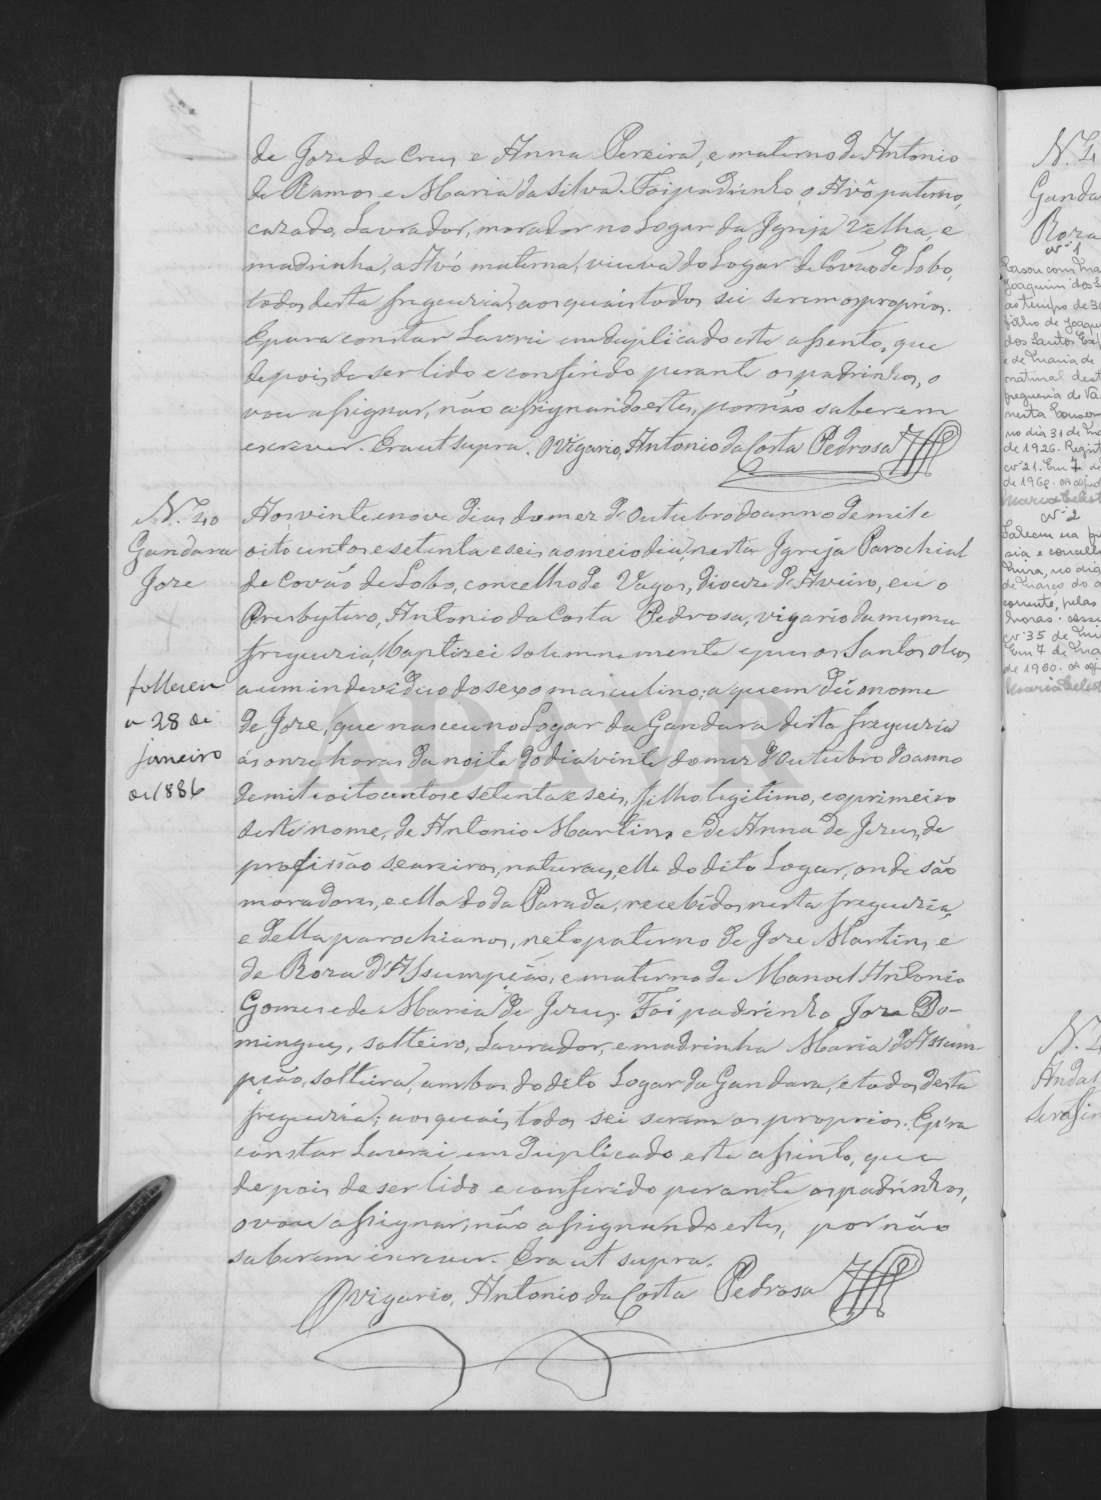 de Joze da Cruz e Anna Pereira, e materno de Antonio
de Ramos e Maria da Silva. Foi padrinho o Avô paterno,
cazado, Lavrador, morador no Logar da Igreja Velha, e
madrinha, a Avó materna, viuva do Logar de Covão de Lobo,
todos desta freguezia, aos quais todos sei serem os proprios.
E para constar Lavrei em duplicado este assento, que
depois de ser lido e conferido perante os padrinhos, o
vou assignar, não assignando estes, por não saberem
escrever. Era ut supra. O Vigario, Antonio da Costa Pedrosa
N.º 40
Gandara
Joze
Aos vinte e nove dias do mez de Outubro do anno de mil e
oito centos e setenta e seis ao meio dia, nesta Igreja Parochial
de Covão de Lobo, concelho de Vagos, diocese d'Aveiro, eu o
Presbytero, Antonio da Costa Pedrosa, vigario da mesma
freguezia, baptizei solemnemente e puz os Santos oleos
a um individuo do sexo masculino; a quem dei o nome
de Joze, que nasceu no Logar da Gandara desta freguezia
ás onze horas da noite do dia vinte do mez d'Outubro do anno
de mil e oito centos e setenta e seis, filho legitimo, e o primeiro
deste nome, de Antonio Martins e de Anna de Jezus, de
profissão seareiros, naturaes, elle do dito Logar, onde são
moradores, e ella do da Parada, recebidos nesta freguezia,
e della parochianos, neto paterno de Joze Martins e
de Roza d'Assumpção, e materno de Manoel Antonio
Gomes e de Maria de Jezus. Foi padrinho Joze Do-
mingues, solteiro, Lavrador, e madrinha Maria d'Assum-
pção, solteira, ambos do dito Logar da Gandara, e todos desta
freguezia; aos quais todos sei serem os proprios. E p'ra
constar Lavrei em duplicado este assento, que
depois de ser lido e conferido perante os padrinhos,
o vou assignar, não assignando estes, por não
saberem escrever. Era ut supra.
O Vigario, Antonio da Costa Pedrosa
falleceu
a 28 de
janeiro
de 1886
ADAVR
N. 4
Ganda
Roza
nº 1
Joaquim dos S
ao tempo de
filho de Joaqu
dos Santos
e de Maria de
natural dest
freguesia de Va
nesta
no dia 31 de
de 1926.
nº 21. Em 7 de
de 1960.
nº 2
Faleceu na
horas.
nº 35 de
Em 7 de
de 1960.
N. 4
Andal
Serafin